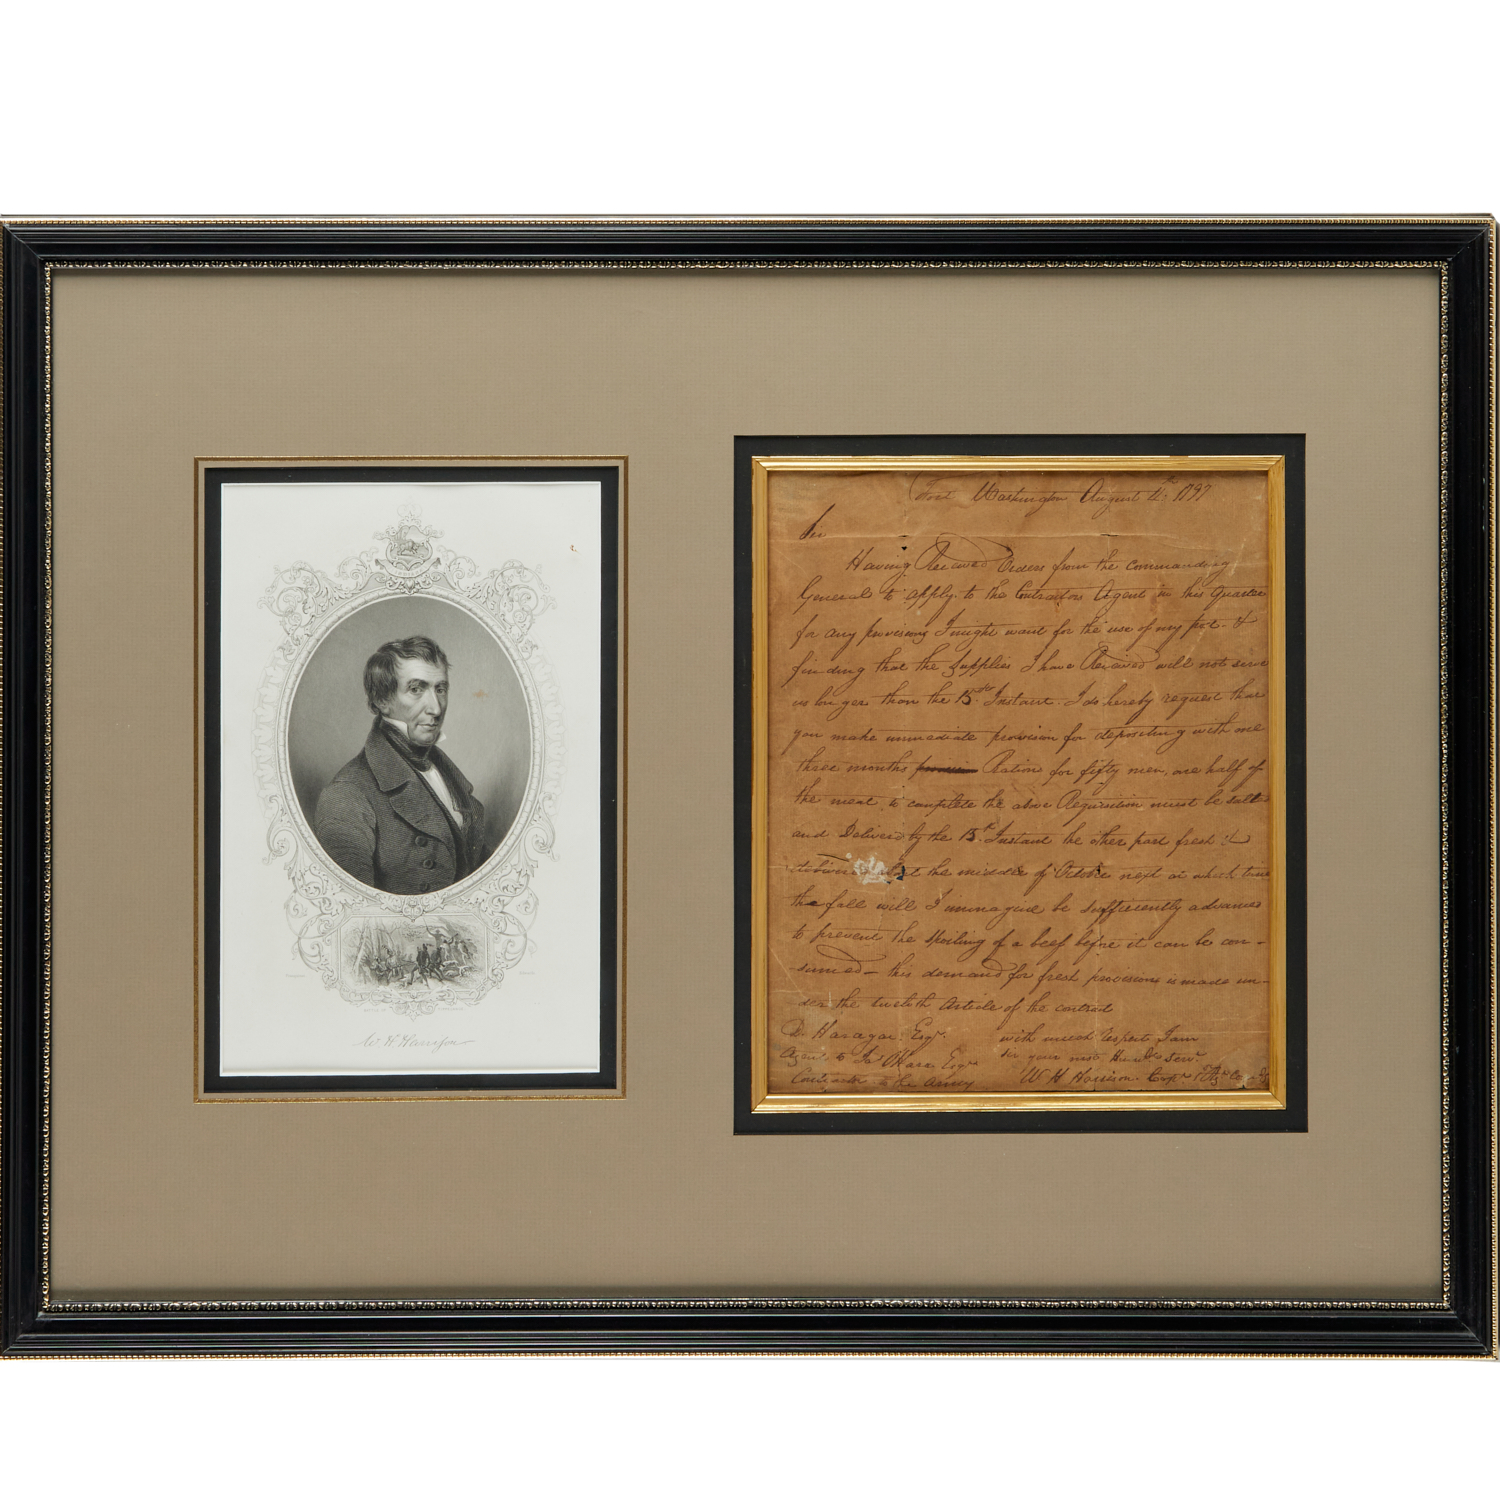 W H Harrison
Fort Washington August 4th 1797
Sir
Having Received Orders from the commanding
General to apply to the Contractors Agent in this Quarter
for any provisions I might want for the use of my post &
finding that the Supplies I have Received will not serve
us longer than the 15th Instant. I do hereby request that
you make immediate provision for depositing with me
three months Rations for fifty men, one half of
the meat to complete the above Requisition must be salted
and Delivered by the 15th Instant the other part fresh &
delivered about the middle of October next at which time
the fall will I immagine be sufficiently advanced
to prevent the spoiling of a beef before it can be con-
sumed — this demand for fresh provisions is made un-
der the twelfth Article of the contract
with much respect I am
Sir your most Humble Servt
W H Harrison Capn
D. Haragar Esqr.
Agent to Jas OHara Esqr
Contractor to the Army